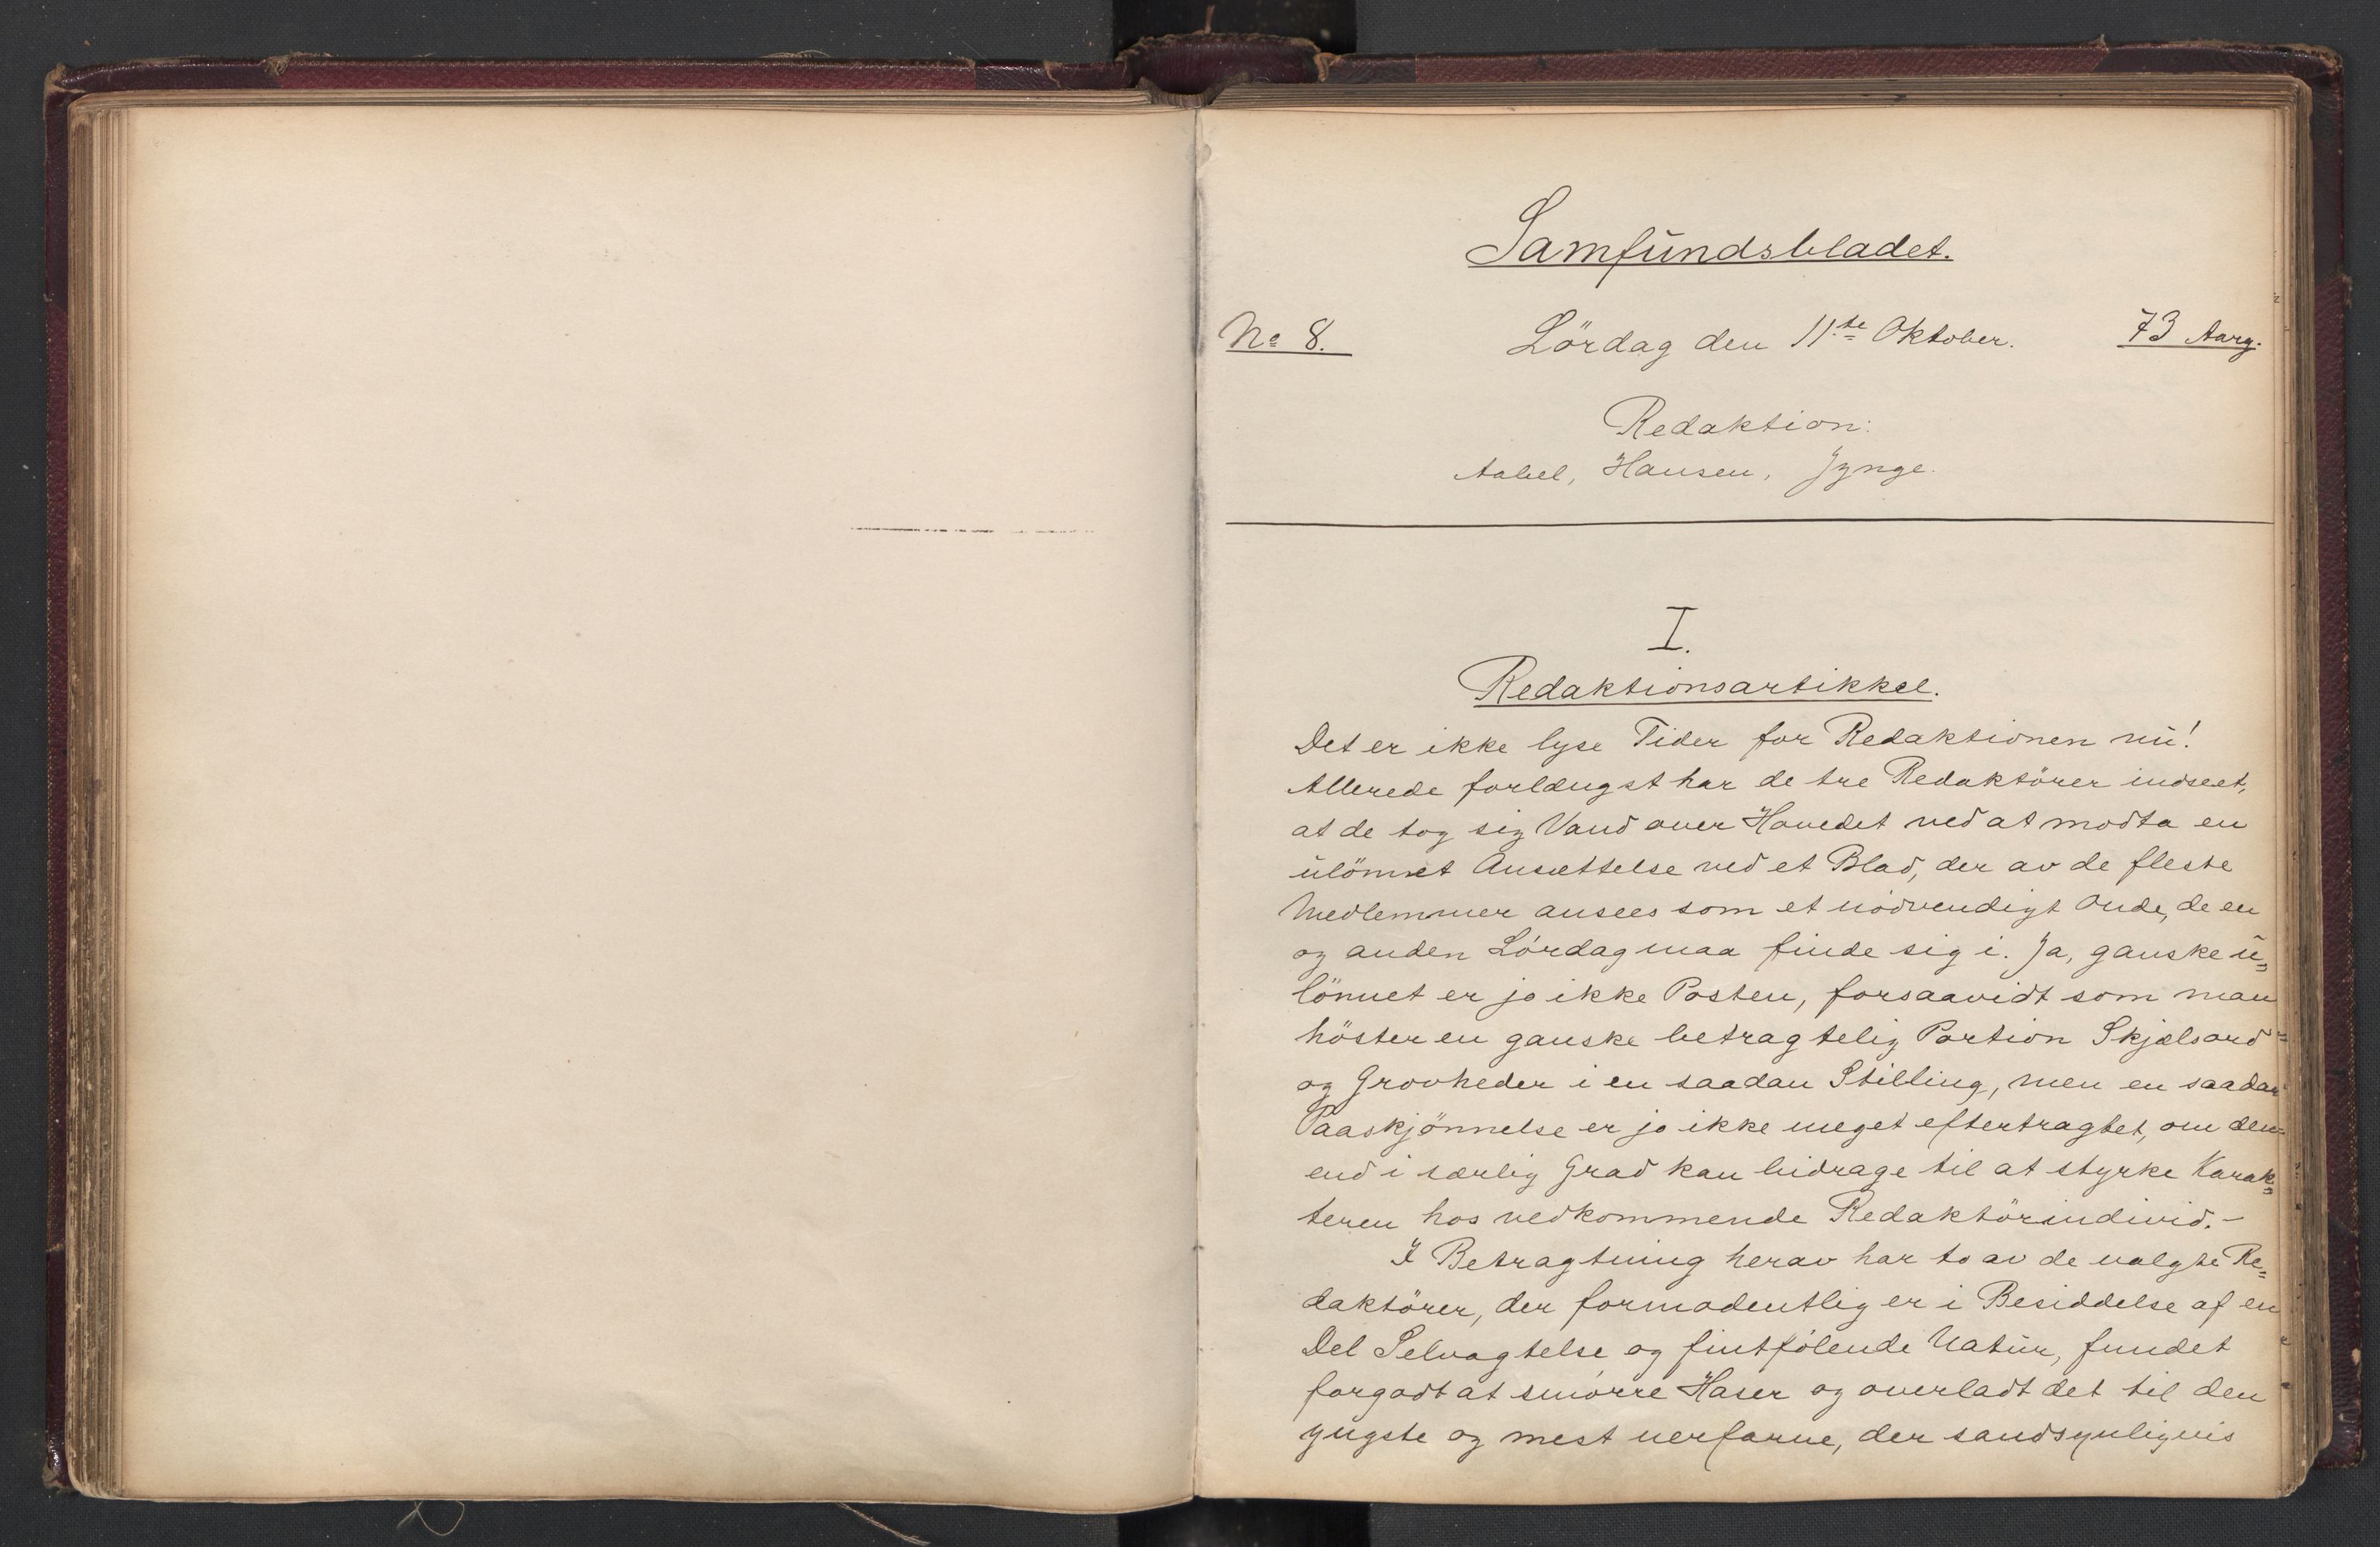 Samfundsbladet.
No 8. Lördag den 11te Oktober. 73 Aarg.
Redaktion:
Aabel, Hansen, Jynge.
I.
Redaktionsartikkel.
Det er ikke lyse Tider for Redaktionen nu!
Allerede forlængst har de tre Redaktörer indseet,
at de tog sig Vand over Hovedet ved at modta en
ulönnet Ansættelse ved et Blad, der av de fleste
Medlemmer ansees som et nödvendigt Onde, de en
og anden Lördag maa finde sig i. Ja, ganske u=
lönnet er jo ikke Posten, forsaavidt som man
höster en ganske betragtelig Portion Skjælsord=
og Grovheder i en saadan Stilling, men en saadan
Paaskjönnelse er jo ikke meget eftertragtet, om den
end i særlig Grad kan bidrage til at styrke Karak=
teren hos vedkommende Redaktörindivid.-
I Betragtning herav har to av de valgte Re=
daktörer, der formodentlig er i Besiddelse af en
Del Selvagtelse og fintfölende Natur, fundet
forgodt at smörre Haser og overladt det til den
yngste og mest uerfarne, der sandsynligvis